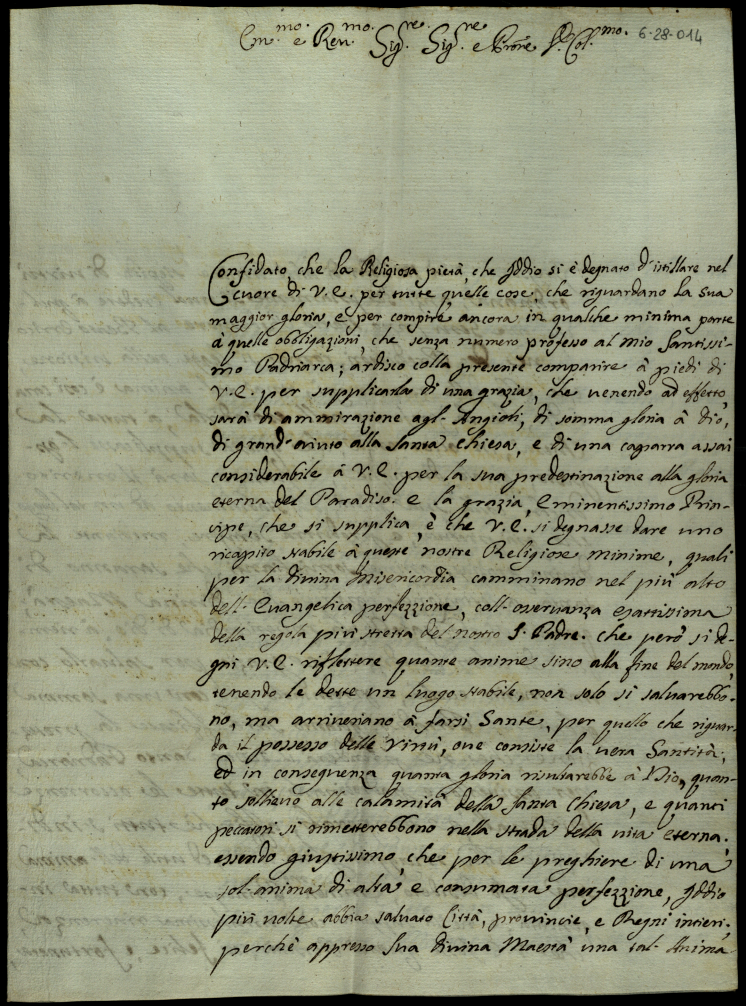 Em.mo e Rev.mo Sig.re Sig.re e Prone Col.mo 6-28-014
Confidato, che la Religiosa pietà, che Iddio si è degnato d'istillare nel
cuore di V.E. per tutte quelle cose, che riguardano la sua
maggior gloria, e per compire ancora in qualche minima parte
à quelle obbligazioni, che senza numero professo al mio Santissi-
mo Padriarca; ardisco colla presente comparire à piedi di
V.E. per supplicarla di una grazia, che venendo ad effetto,
sarà di ammirazione agl'Angioli, di somma gloria à Dio,
di grand'aiuto alla Santa Chiesa, e di una caparra assai
considerabile à V.E. per la sua predestinazione alla gloria
eterna del Paradiso. e la grazia, Eminentissimo Prin-
cipe, che si supplica, è che V.E. si degnasse dare uno
ricapito stabile à queste nostre Religiose Minime, quali
per la divina Misericordia camminano nel più alto
dell'Evangelica perfezzione, coll'osservanza esattissima
della regola più stretta del nostro S. Padre. che però si de-
gni V.E. riflettere quante anime sino alla fine del mondo,
tenendo le dette un luogo stabile, non solo si salvarebbo-
no, ma arriveriano à farsi Sante, per quello che riguar-
da il possesso delle Virtù, ove consiste la vera Santità;
ed in conseguenza quanta gloria risultarebbe à Dio, quan-
to sollievo alle calamità della Santa Chiesa, e quanti
peccatori si rimetterebbono nella strada della vita eterna.
essendo giustissimo, che per le preghiere di una
sol'anima di alta, e consumata perfezzione, Iddio
più volte abbia salvato Città, provincie, e Regni intieri,
perchè appresso Sua Divina Maestà una tal'Anima